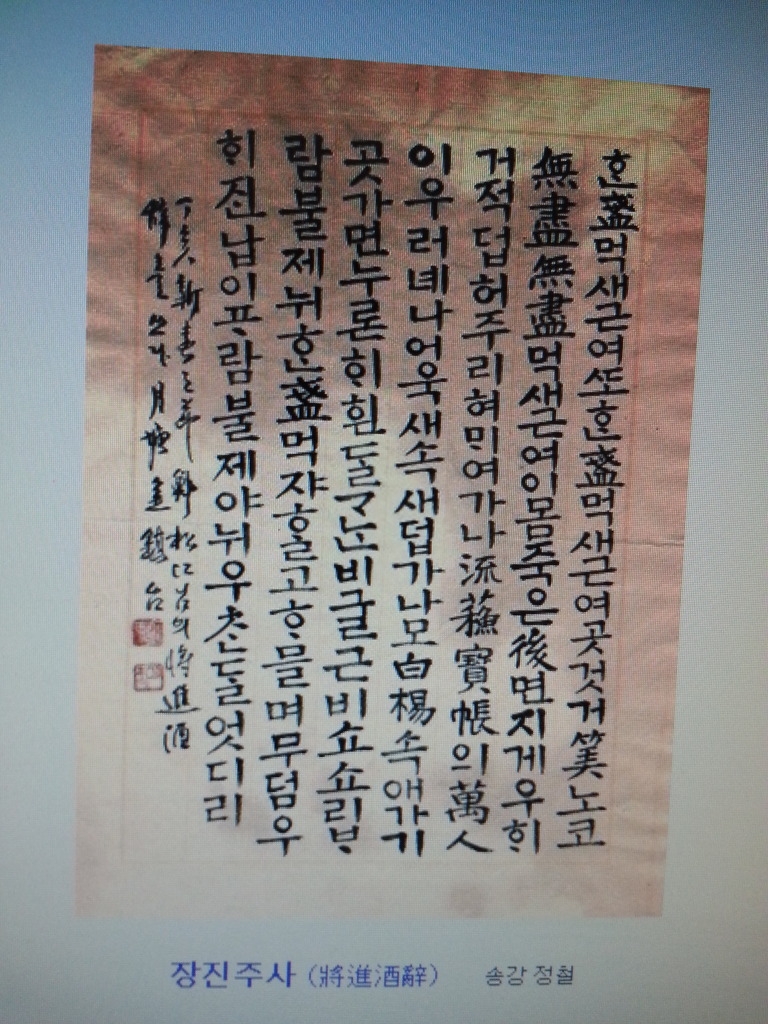 ᄒᆞᆫ盞먹새근여ᄯᅩᄒᆞᆫ盞먹새근여곳것거筭노코
無盡無盡먹새근여이몸죽은後면지게우ᄒᆡ
거적덥허주리혀ᄆᆡ여가나流蘇寶帳의萬人
이우러녜나어욱새속새덥가나모白楊속애가기
곳가면누론ᄒᆡ흰ᄃᆞᆯᄀᆞᄂᆞᆫ비굴근비쇼쇼리ᄇᆞ
람불제뉘ᄒᆞᆫ盞먹쟈ᄒᆞᆯ고ᄒᆞᄆᆞᆯ며무덤우
ᄒᆡ진납이ᄑᆞ람불제야뉘우ᄎᆞᆫᄃᆞᆯ엇디리
丁亥新春之節 鄭松江님의將進酒
辭를쓰다 月塘 金鎭台
장진주사 (將進酒辭) 송강 정철